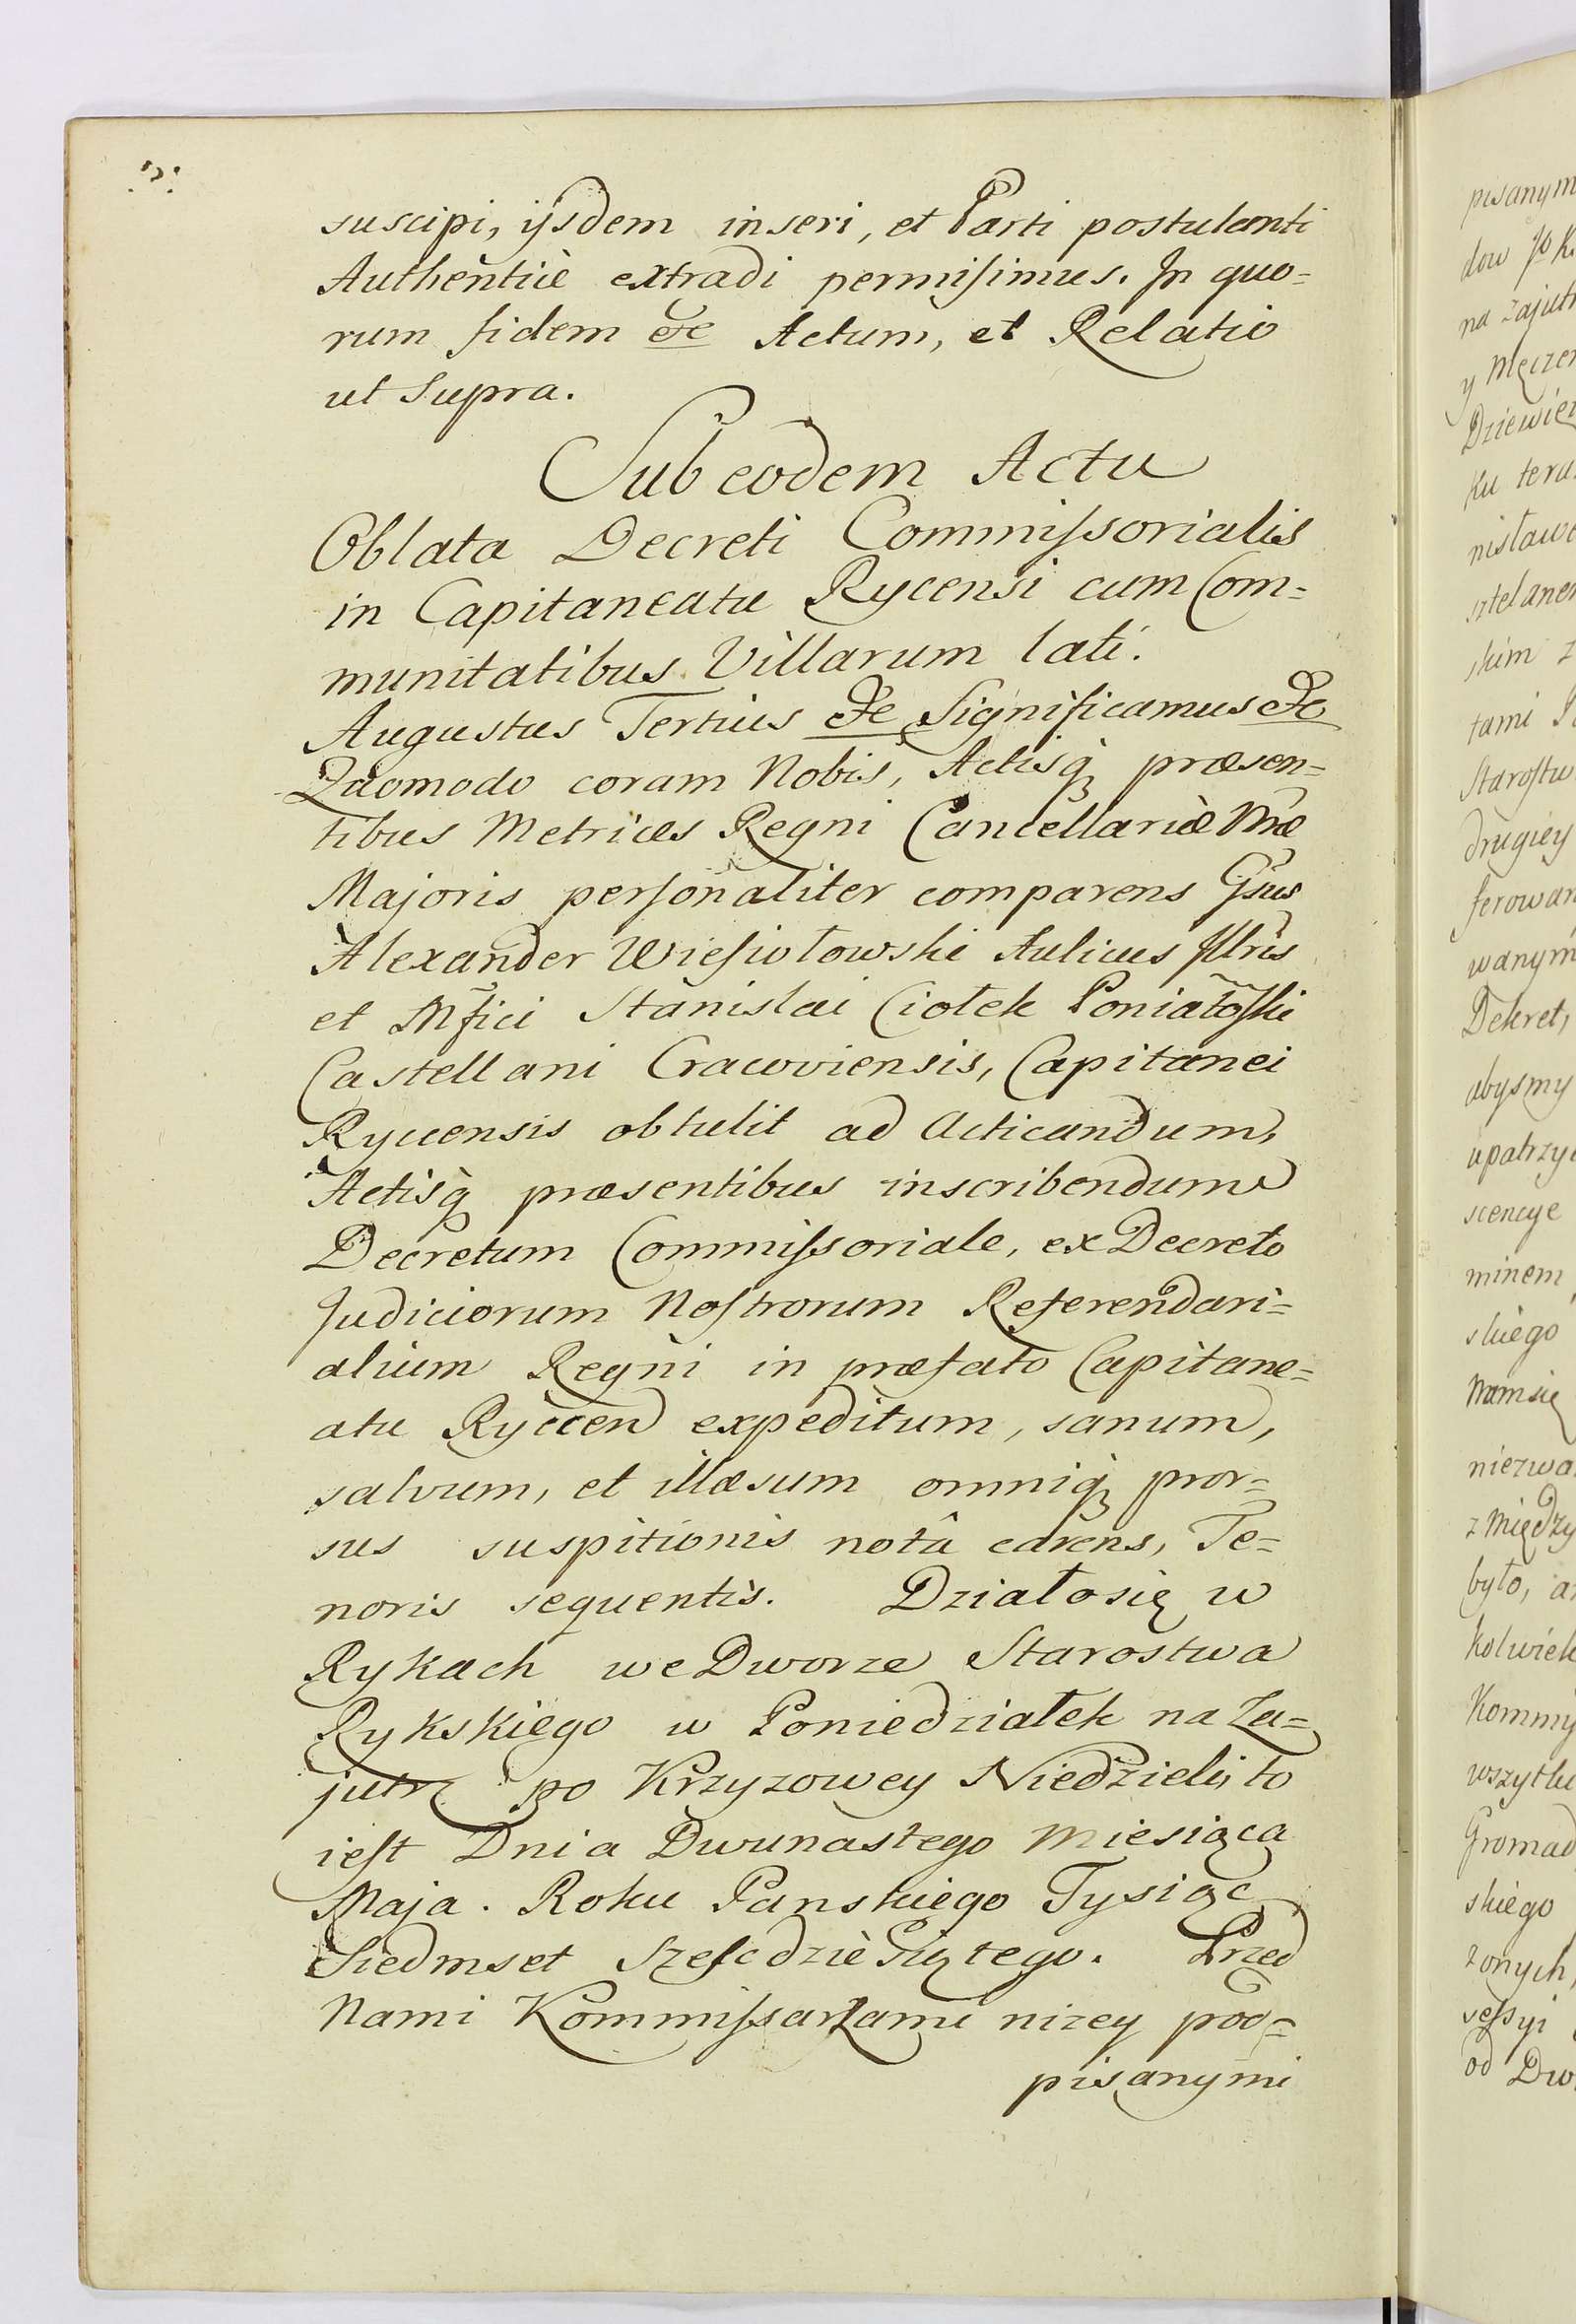 suscipi, ijsdem inseri, et Parti postulanti
Authenticè extradi permisimus. In quo=
rum fidem &c Actum, et Relatio
ut Supra.
Sub eodem Actu
Oblata Decreti Commissorialis
in Capitaneatu Rycensi cum Com=
munitatibus Villarum lati.
Augustus Tertius &c Significamus &c
Quomodo coram Nobis, Actisq́ præsen=
tibus Metrices Regni Cancellariæ Nr̃æ
Majoris personaliter comparens Gsus
Alexander Wiesiołowski Aulicus Illris
et Mfici Stanislai Ciołek Poniatoski
Castellani Cracoviensis, Capitanei
Ryccensis obtulit ad Acticandum,
Actisq́ præsentibus inscribendum
Decretum Commissoriale, ex Decreto
Judiciorum Nostrorum Referendari=
alium Regni in præfato Capitane=
atu Ryccen expeditum, sanum,
salvum, et illæsum omniq́ pror=
sus suspitionis notâ carens, Te=
noris sequentis. Działo się w
Rykach we Dworze Starostwa
Rykskiego w Poniedziałek na Za=
jutrz po Krzyzowey Niedzieli, to
iest Dnia Dwunastego Miesiąca
Maja. Roku Panskiego Tysiąc
Siedmset Szescdziesiątego. Przed
Nami Kommissarzami nizey pod=
pisanymi
pisanym
na zajutr
y Męczen
Dziewię
ku tera
nisławo
sztelanem
skim z
tami
Starostw
drugiey
ferowan
wanym
Dekret,
abysmy
upatrzy
scencye
minem
skiego
Nam się
niezwa
z między
było, a
kolwiek
Kommy
wszytki
Gromad
skiego
zonych,
sessyi
od Dw